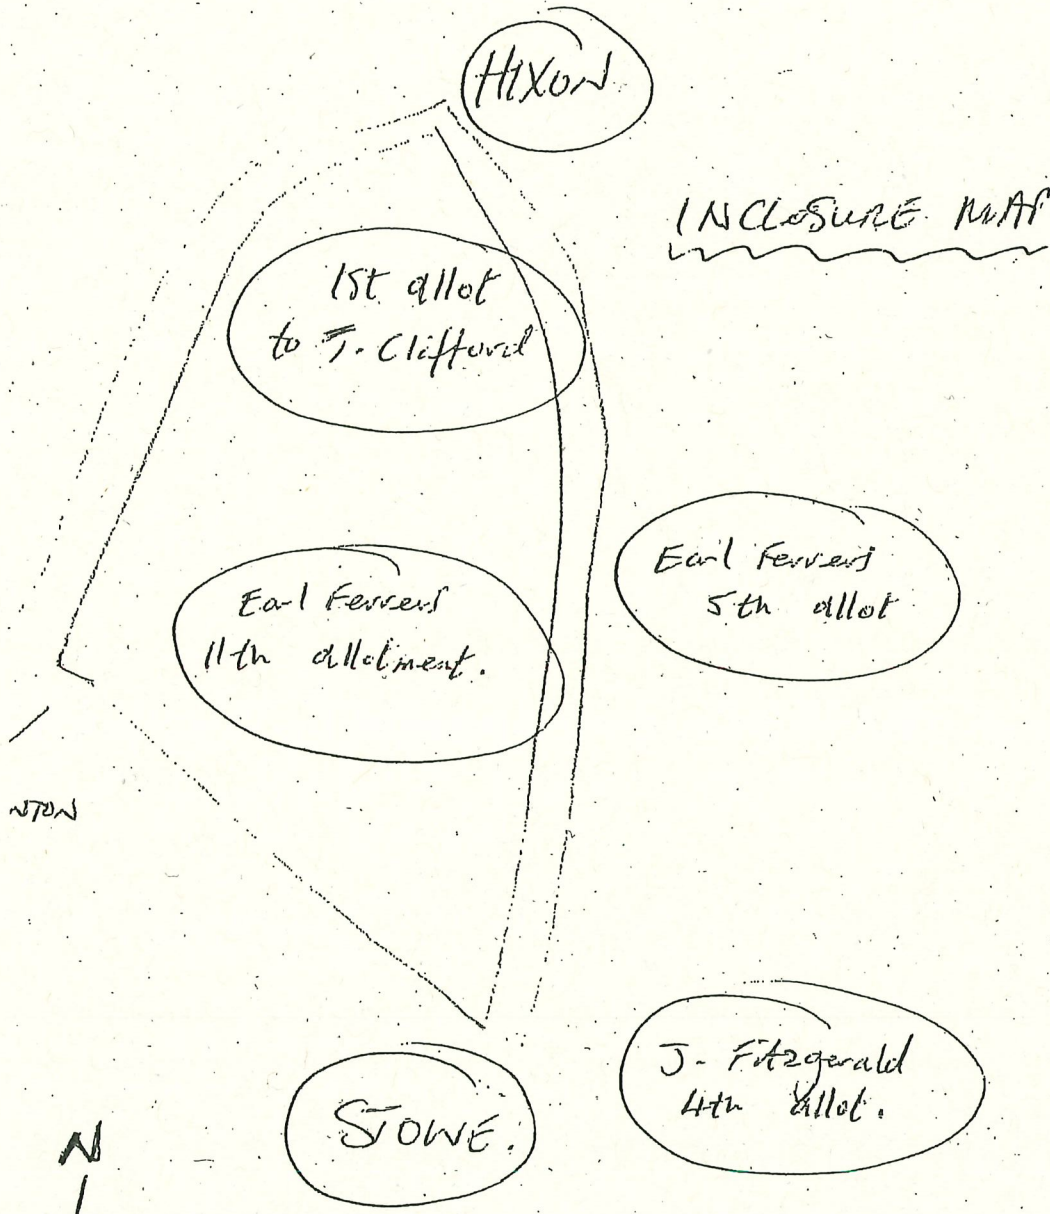 HIXON
INCLOSURE MAP
1st allot
to T. Clifford
Earl Ferrers
5th allot
Earl Ferrers
11th allotment.
NTON
J. Fitzgerald
4th allot.
STOWE.
N